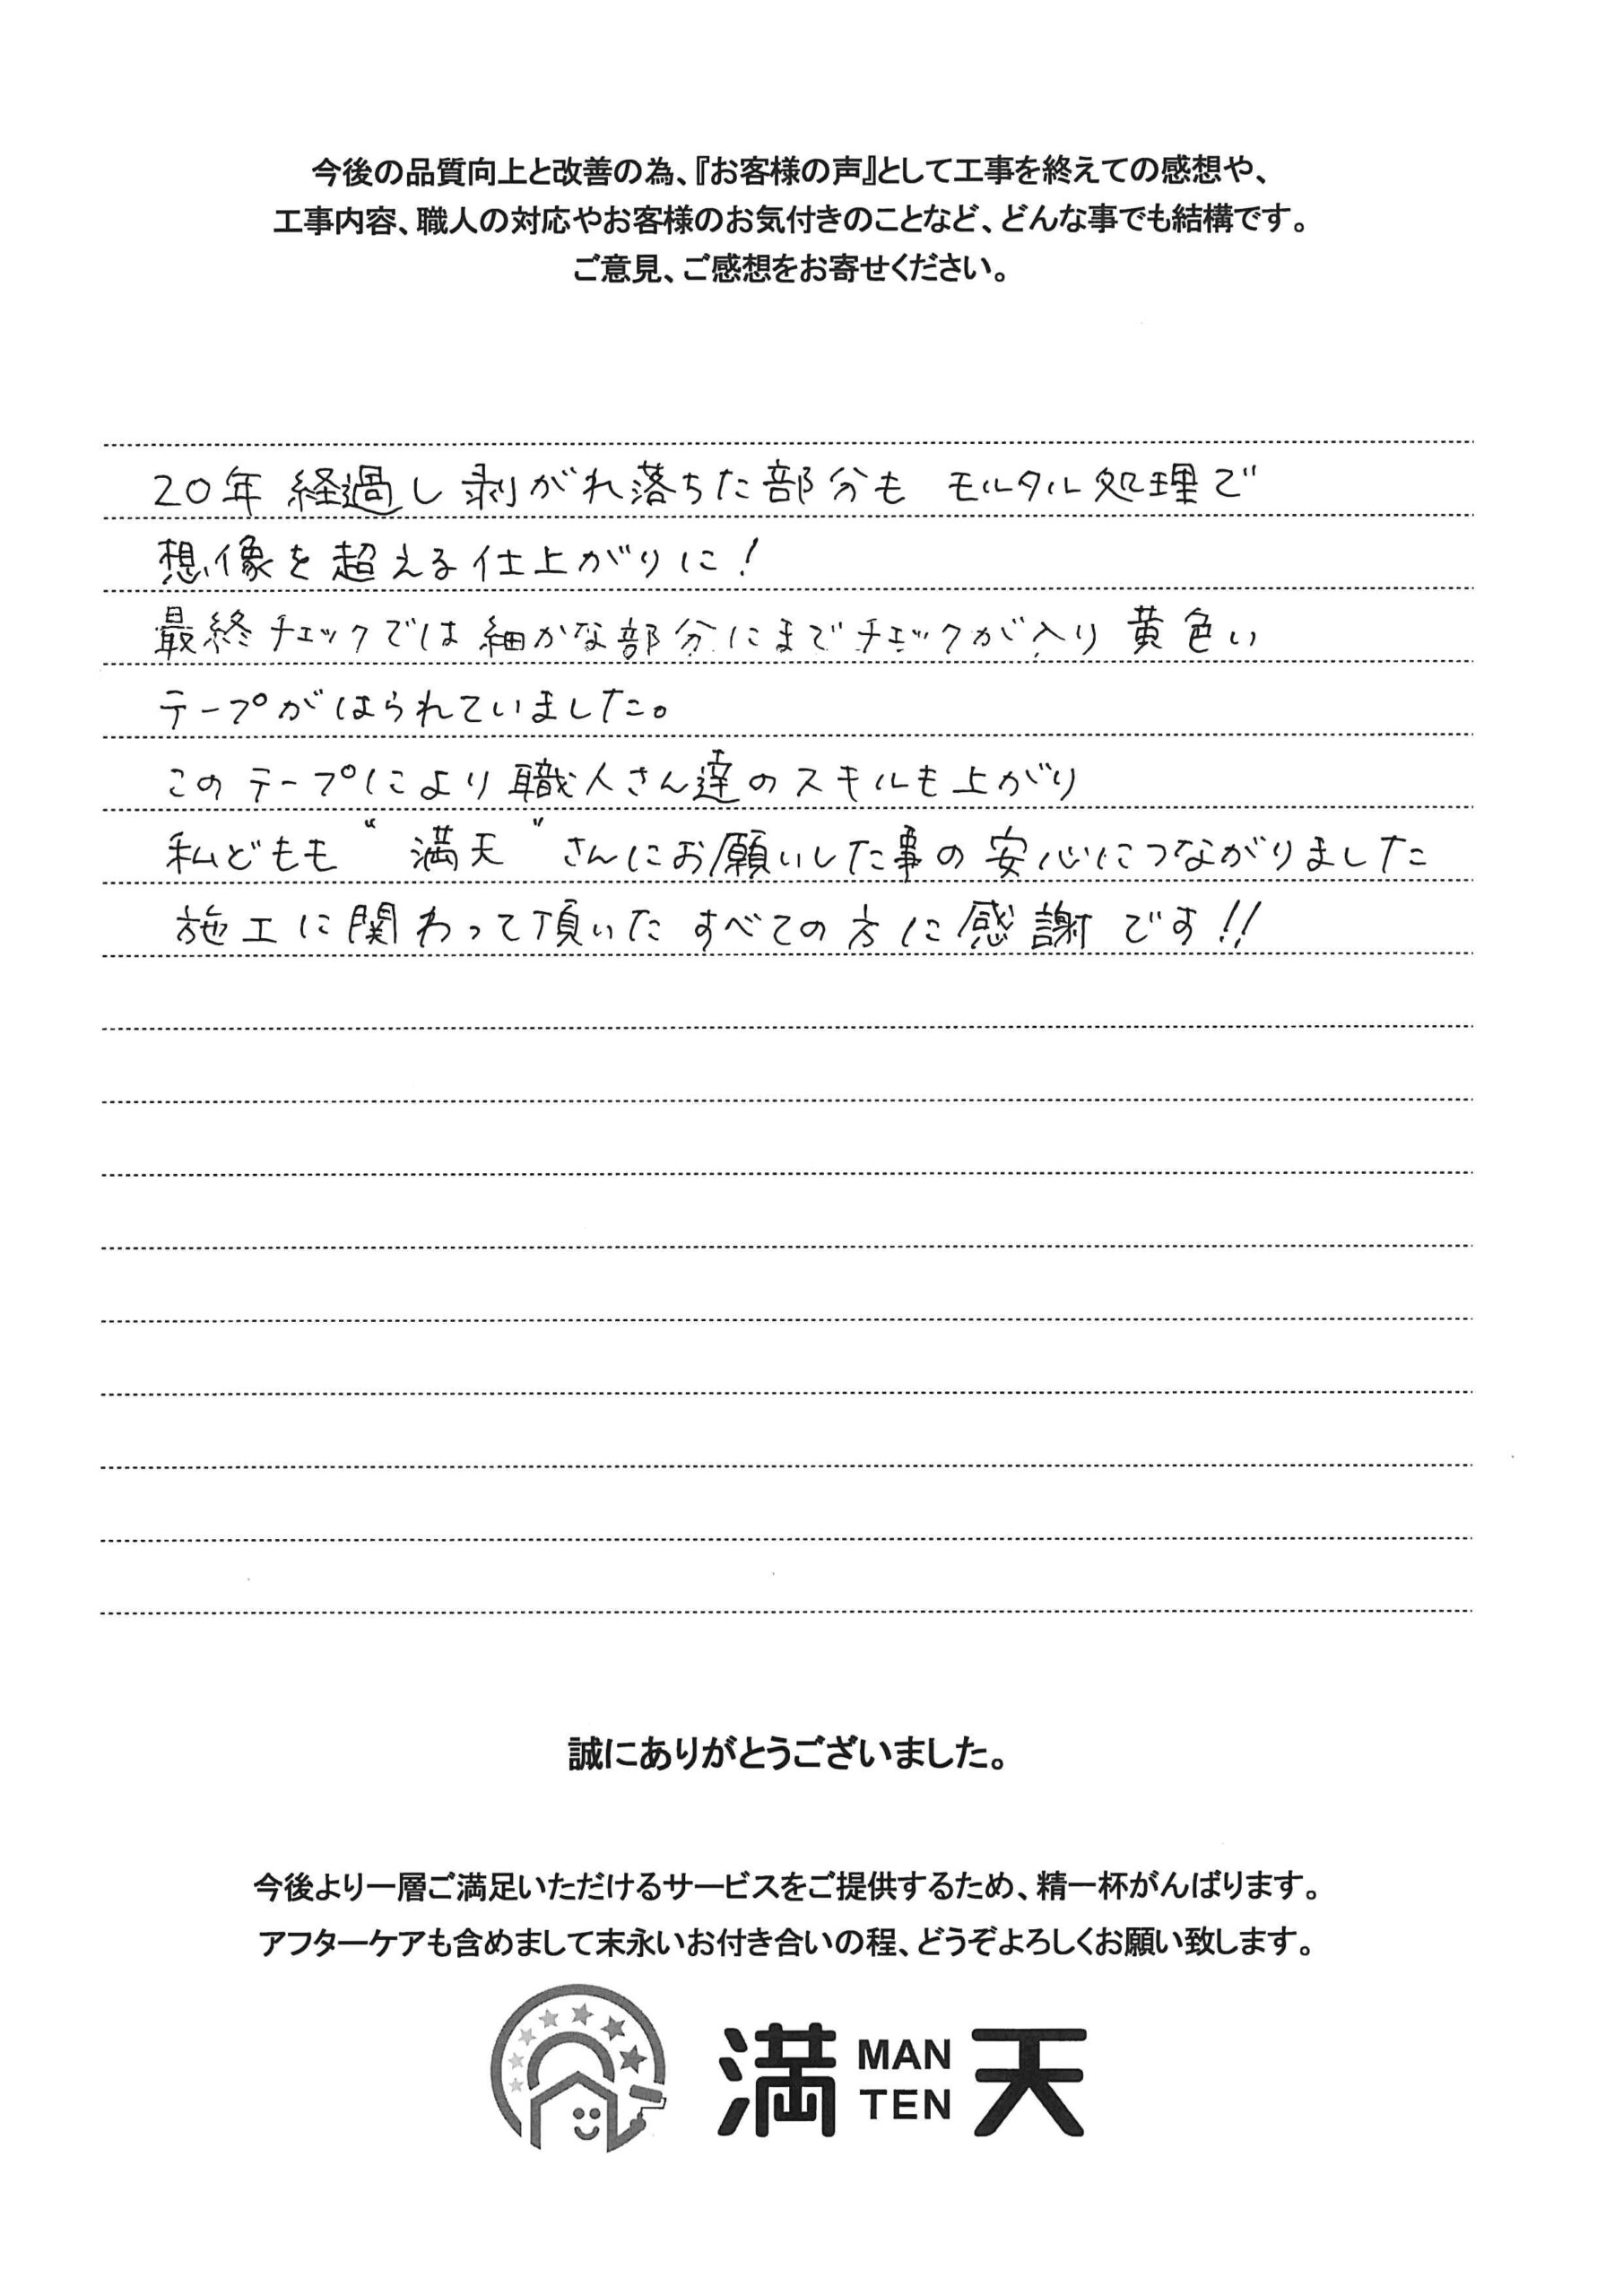 今後の品質向上と改善の為、『お客様の声』として工事を終えての感想や、
工事内容、職人の対応やお客様のお気付きのことなど、どんな事でも結構です。
ご意見、ご感想をお寄せください。
20年 経過し 剥がれ落ちた部分も モルタル処理で
想像を超える仕上がりに!
最終チェックでは細かな部分にまでチェックが入り 黄色い
テープがはられていました。
このテープにより職人さん達のスキルも上がり
私どもも“満天”さんにお願いした事の安心につながりました
施工に関わって頂いた すべての方に感謝です!!
誠にありがとうございました。
今後より一層ご満足いただけるサービスをご提供するため、精一杯がんばります。
アフターケアも含めまして末永いお付き合いの程、どうぞよろしくお願い致します。
満 MAN TEN 天